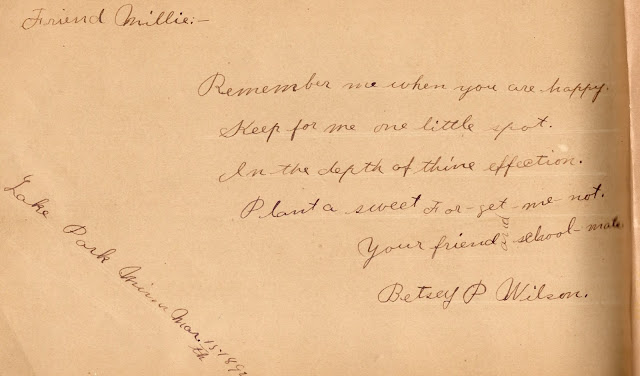 Friend Millie:-
Remember me when you are happy.
Keep for me one little spot.
In the depth of thine effection.
Plant a sweet For-get-me-not.
Your friend and school-mate
Betsey P Wilson.
Lake Park Minn Mar. 15th 189